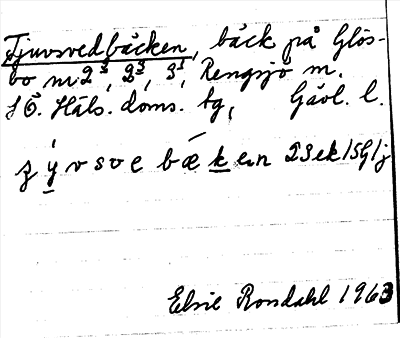 Tjuvsvedbäcken, bäck på Glös-
bo m. 2³, 3³, 3¹, Rengsjö m.
SÖ. Häls. doms. tg, Gävl. l.
bækæn
Elsie Rondahl 1963